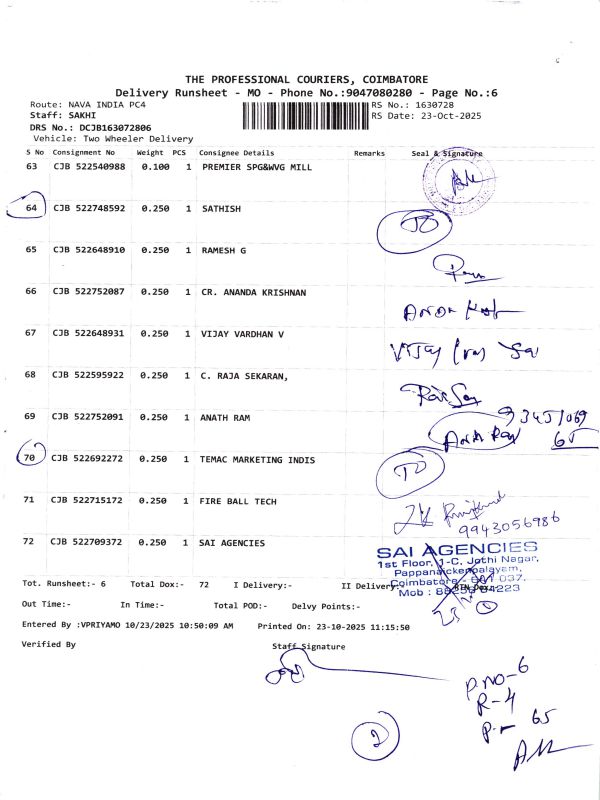 THE PROFESSIONAL COURIERS, COIMBATORE
Delivery Runsheet - MO - Phone No.:9047080280 - Page No.:6
Route: NAVA INDIA PC4 RS No.: 1630728
Staff: SAKHI RS Date: 23-Oct-2025
DRS No.: DCJB163072806
Vehicle: Two Wheeler Delivery
S No Consignment No Weight PCS Consignee Details Remarks Seal & Signature
63 CJB 522540988 0.100 1 PREMIER SPG&WVG MILL
64 CJB 522748592 0.250 1 SATHISH
65 CJB 522648910 0.250 1 RAMESH G
66 CJB 522752087 0.250 1 CR. ANANDA KRISHNAN
67 CJB 522648931 0.250 1 VIJAY VARDHAN V
VIJAY
68 CJB 522595922 0.250 1 C. RAJA SEKARAN,
69 CJB 522752091 0.250 1 ANATH RAM
65
70 CJB 522692272 0.250 1 TEMAC MARKETING INDIS
71 CJB 522715172 0.250 1 FIRE BALL TECH
9943056986
72 CJB 522709372 0.250 1 SAI AGENCIES
SAI AGENCIES
1st Floor, 1-C, Jothi Nagar,
Pappanaickenpalayam,
Coimbatore - 641 037.
Mob :
Tot. Runsheet:- 6 Total Dox:- 72 I Delivery:- II Delivery:-
Out Time:- In Time:- Total POD:- Delvy Points:-
Entered By :VPRIYAMO 10/23/2025 10:50:09 AM Printed On: 23-10-2025 11:15:50
Verified By Staff Signature
P.NO-6
R-4
P- 65
2